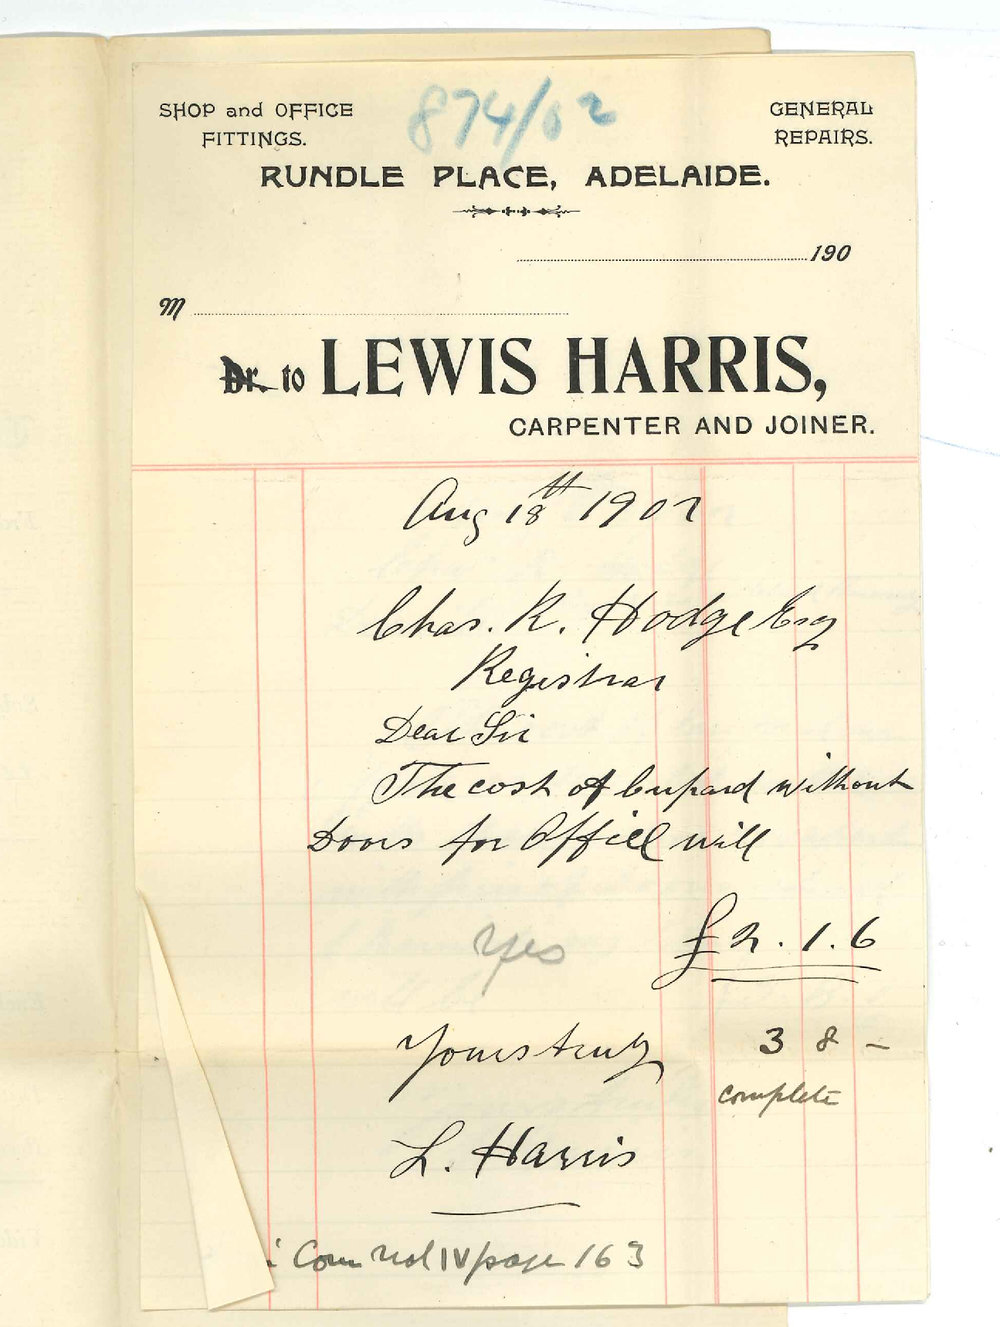 874/02
SHOP and OFFICE
FITTINGS.
GENERAL
REPAIRS.
RUNDLE PLACE, ADELAIDE.
190
M
Dr. to LEWIS HARRIS,
CARPENTER AND JOINER.
Aug 18th 1902
Chas. R. Hodge Esq
Registrar
Dear Sir
The cost of Cupard without
Doors for Office will
£2.1.6
Yes
Yours truly
3 8 -
complete
L. Harris
Com Vol IV page 163